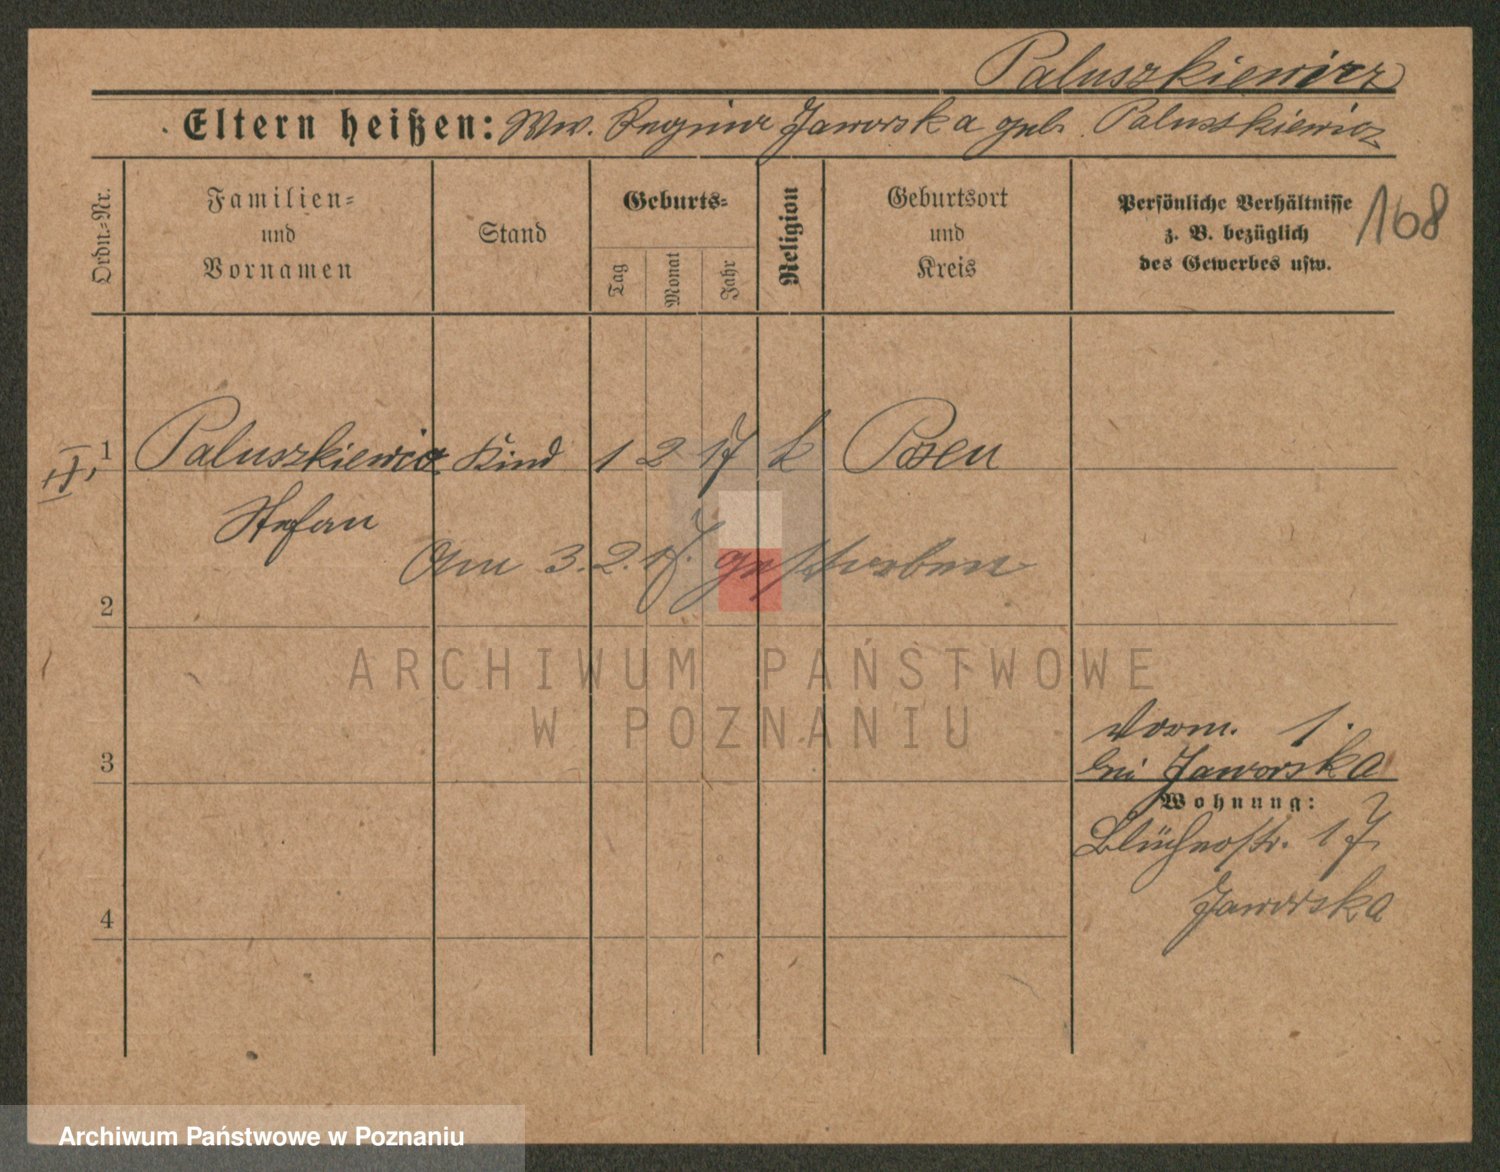 Paluszkiewicz
Eltern heißen: Ww. Regina Jaworska geb. Paluszkiewicz
Ordn.-Nr.
Familien-
und
Vornamen
Stand
Geburts-
Tag
Monat
Jahr
Religion
Geburtsort
und
Kreis
Persönliche Verhältnisse
z. B. bezüglich
des Gewerbes usw.
168
II, 1 Paluszkiewicz Kind 1 2 17 k Posen
Stefan
Am 3.2.17. gestorben
2
ARCHIWUM PAŃSTWOWE
W POZNANIU
Vorm. 1.
3
bei Jaworska
Wohnung:
Blücherstr. 17
Jaworska
4
Archiwum Państwowe w Poznaniu